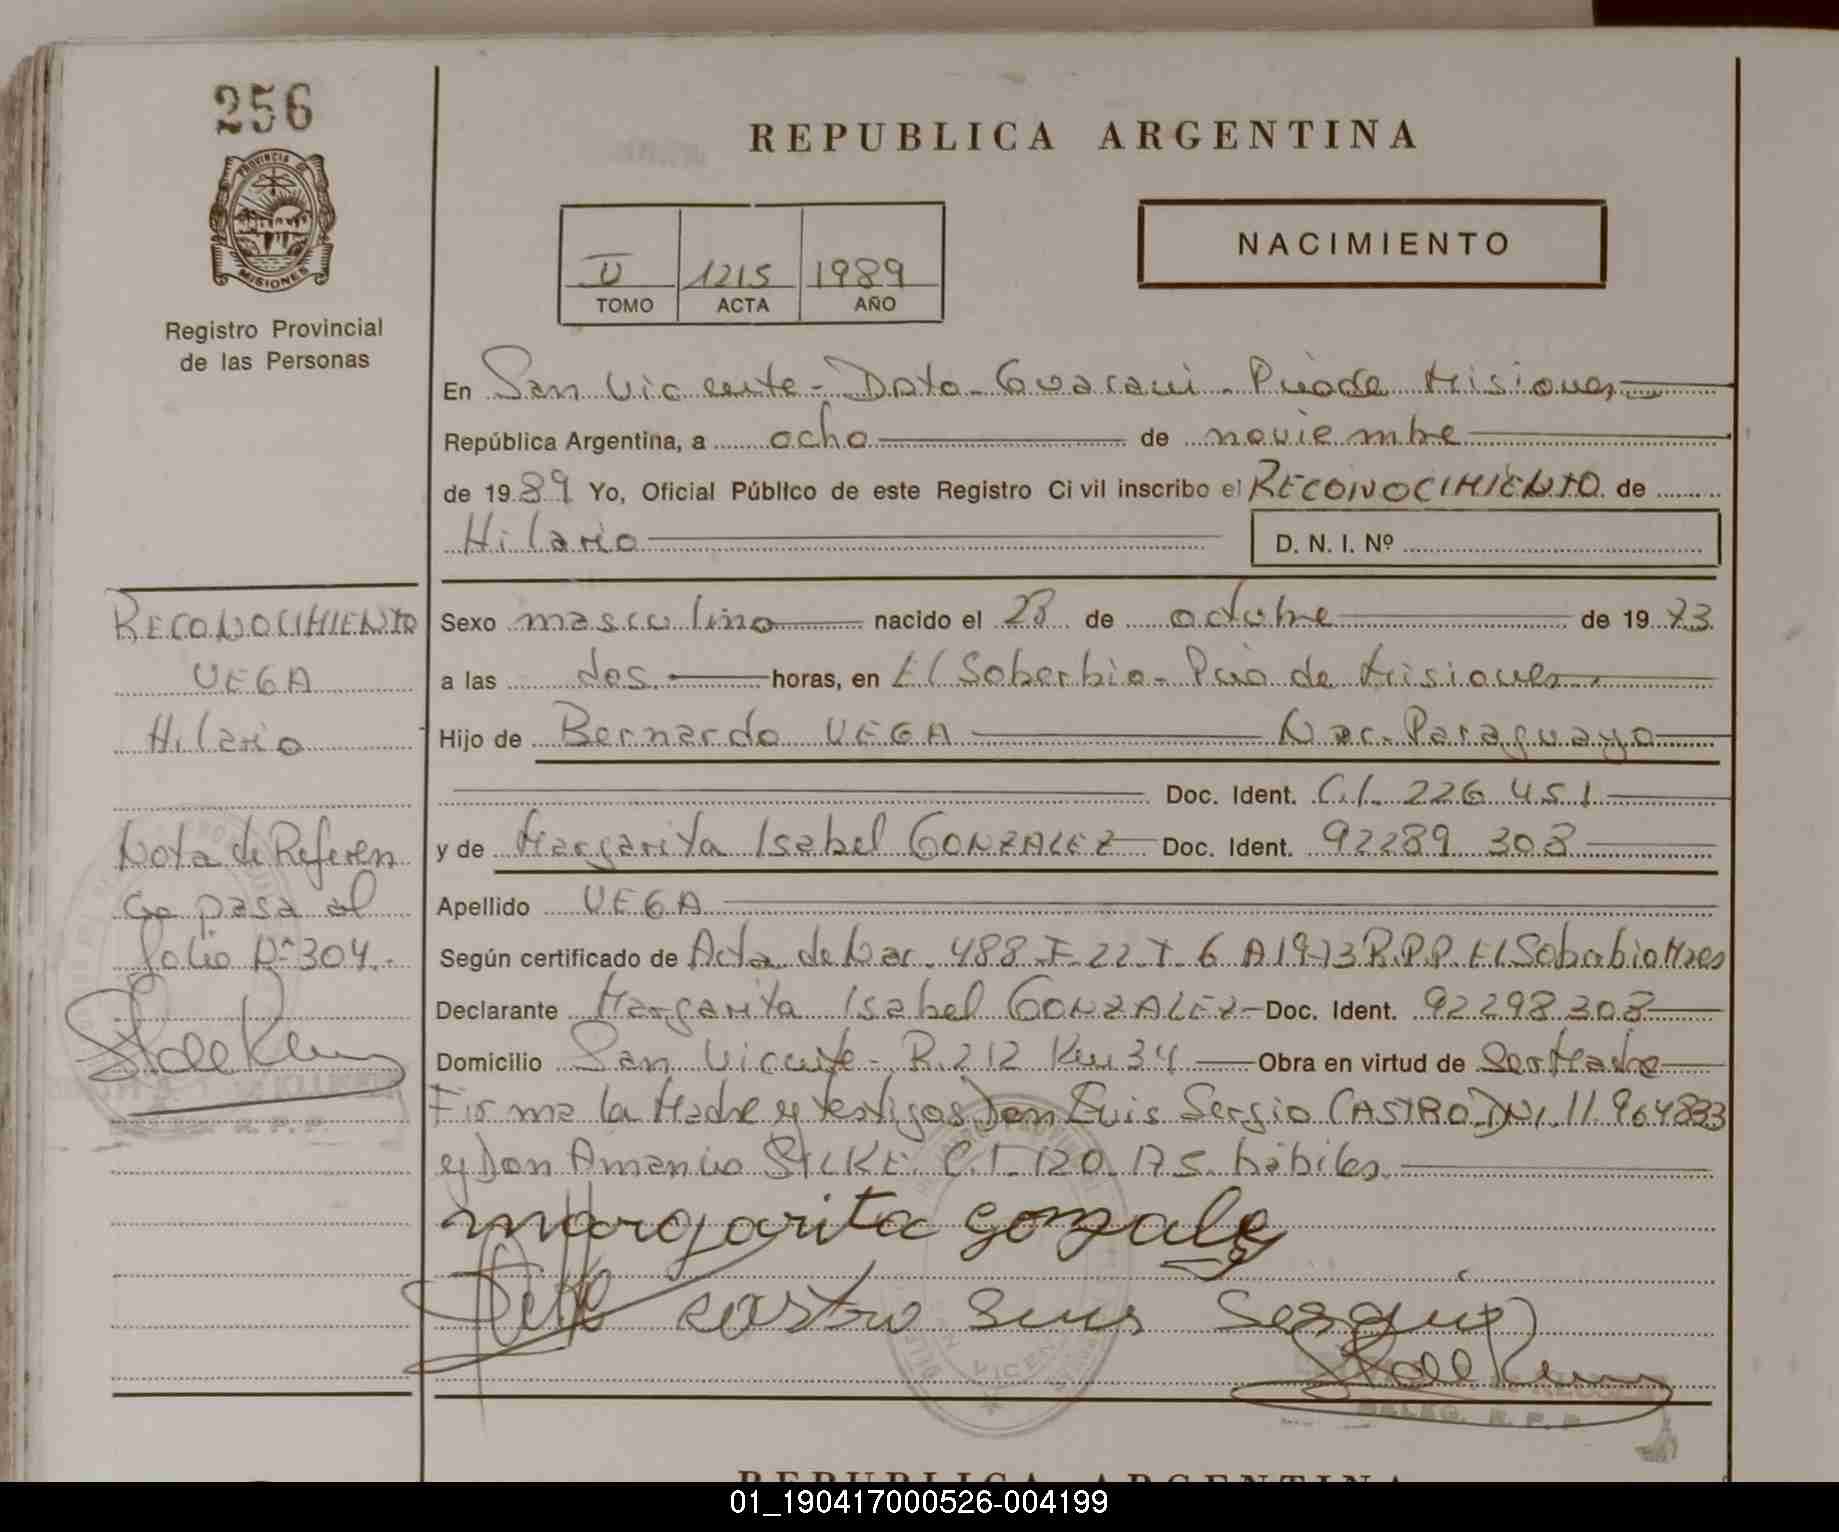 256
REPUBLICA ARGENTINA
PROVINCIA DE
MISIONES
Registro Provincial
de las Personas
U 1215 1989
TOMO ACTA AÑO
NACIMIENTO
En San Vicente - Dpto. Guarani - Pcia de Misiones
República Argentina, a ocho de noviembre
de 1989 Yo, Oficial Público de este Registro Civil inscribo el RECONOCIMIENTO de
Hilario D. N. I. Nº
Sexo masculino nacido el 28 de octubre de 1973
a las dos horas, en El Soberbio - Pcia de Misiones
Hijo de Bernardo VEGA Nac. Paraguayo
Doc. Ident. C.I. 226 451
y de Margarita Isabel GONZALEZ Doc. Ident. 92289 308
Apellido VEGA
Según certificado de Acta de Nac. 488 F. 22 T. 6 A 1973 R.P.P. El Soberbio Mnes
Declarante Margarita Isabel GONZALEZ - Doc. Ident. 92298 308
Domicilio San Vicente - R. 212 Km 34 Obra en virtud de Ser Madre
Firma la Madre y testigos Don Luis Sergio CASTRO DNI. 11.964833
y Don Amancio SILKE C.I. 120.175 hábiles.
margarita gonzalez
castro Luis Sergio
DELEG. R. P. P.
RECONOCIMIENTO
VEGA
Hilario
Nota de Referen
cia pasa al
folio Nº 304.-
R. P. P.
REPUBLICA ARGENTINA
01_190417000526-004199